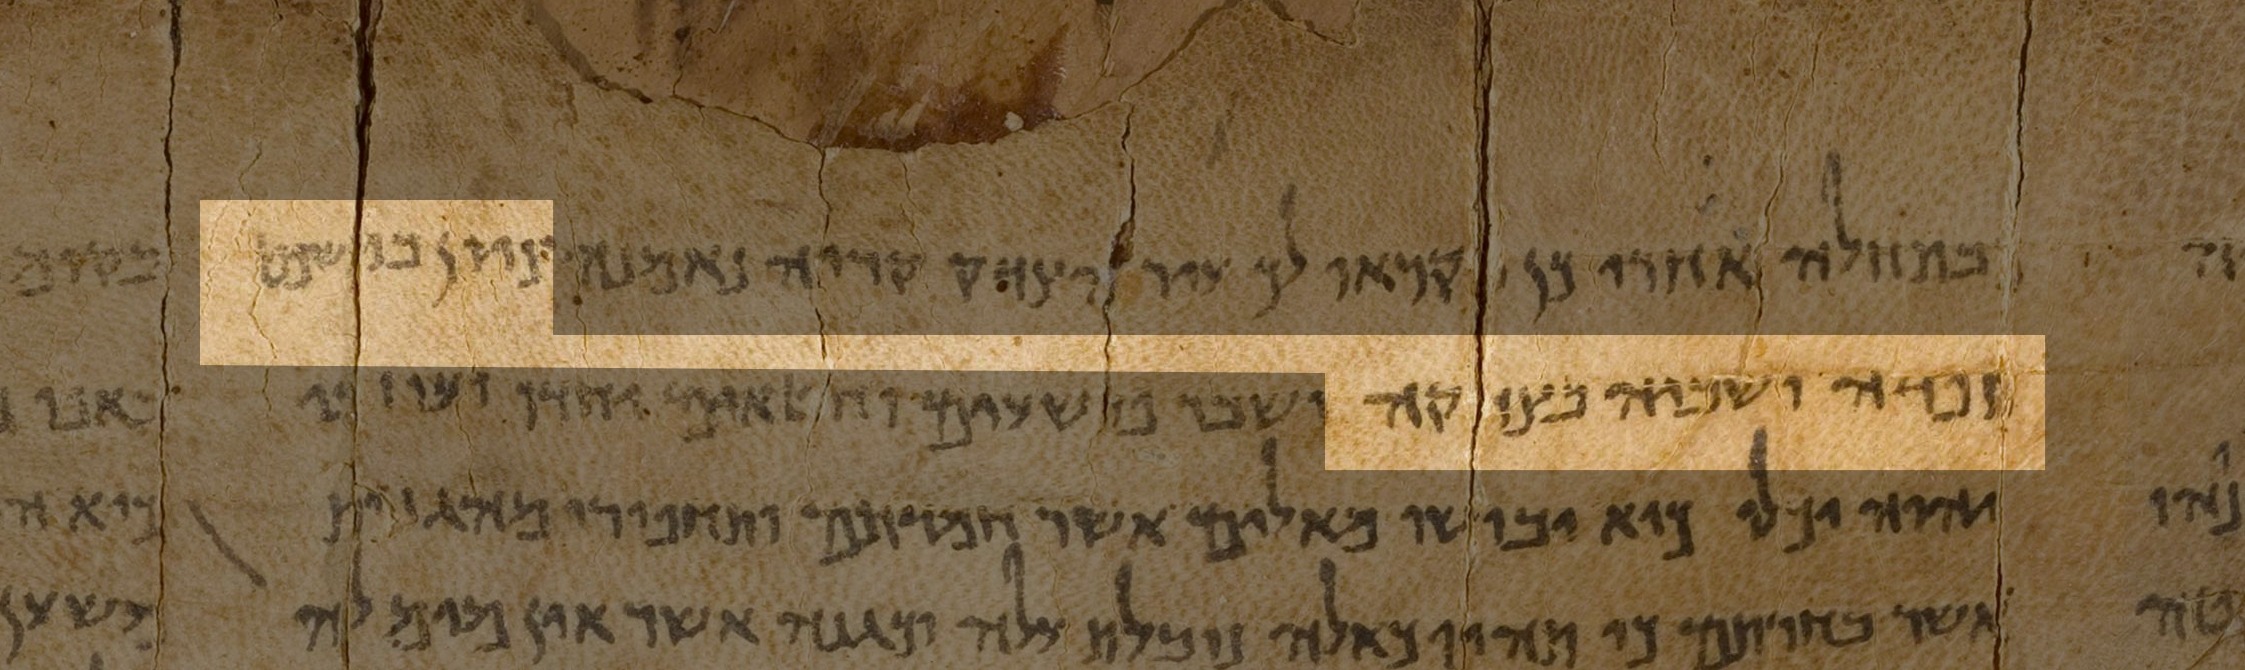 כתחלה אחרי כן יקראו לך עיר הצדק קריה נאמנה ציון במשפט
תפדה ושביה בצדקה ושבר פושעים וחטאים יחדו ועוזבי
יהוה יכלו כיא יבושו מאלים אשר חמדתם ותחפרו מהגנות
אשר בחרתם כי תהיו כאלה נובלת עלה וכגנה אשר אין מים לה